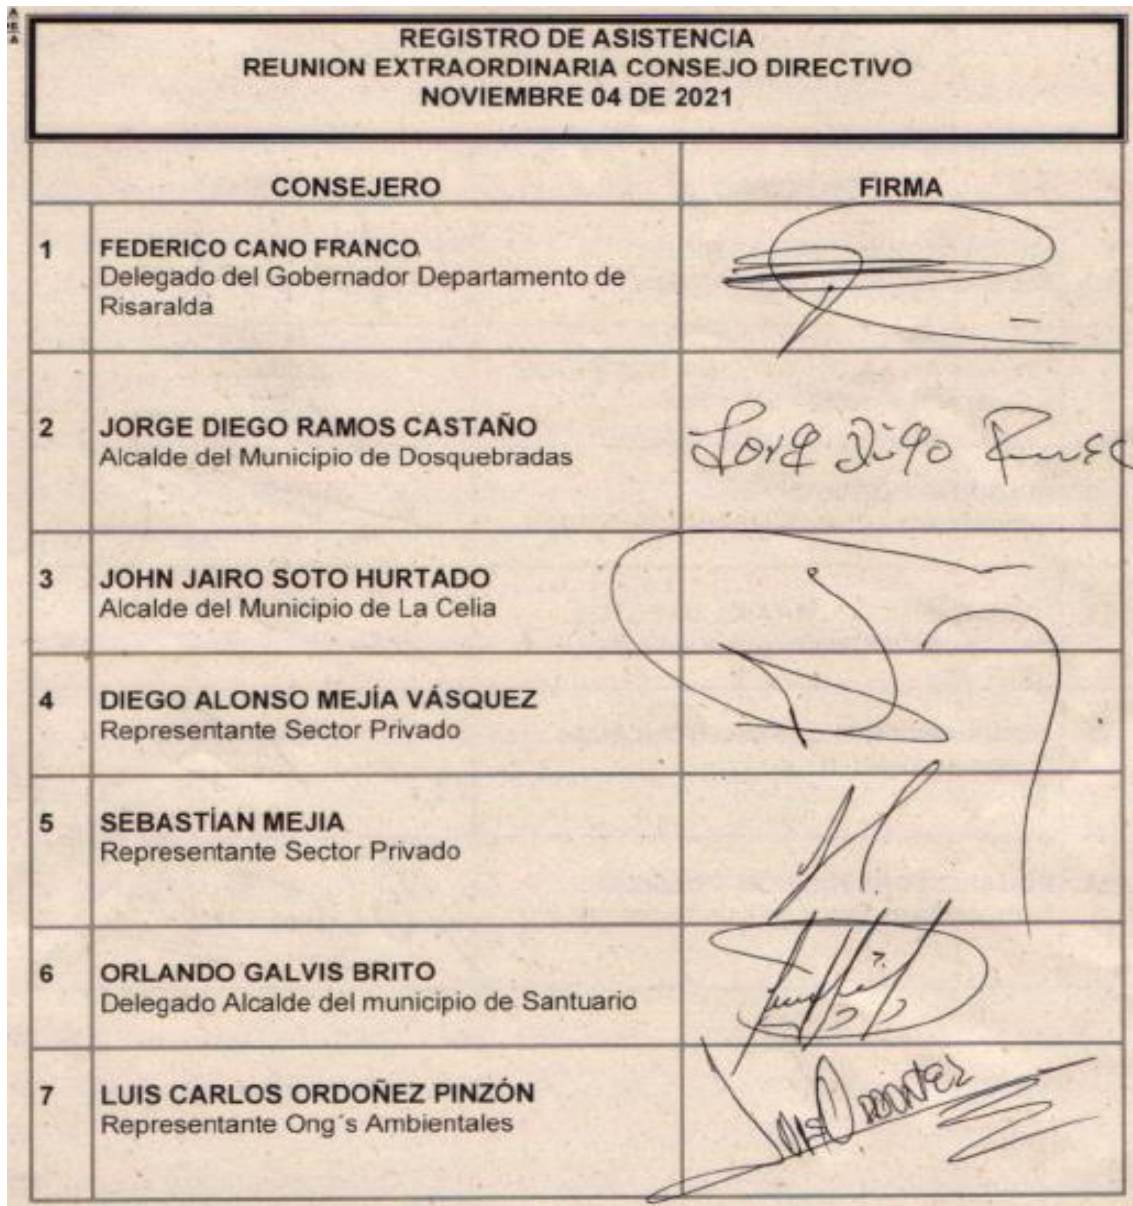 REGISTRO DE ASISTENCIA
REUNION EXTRAORDINARIA CONSEJO DIRECTIVO
NOVIEMBRE 04 DE 2021
CONSEJERO FIRMA
1 FEDERICO CANO FRANCO
Delegado del Gobernador Departamento de
Risaralda
2 JORGE DIEGO RAMOS CASTAÑO
Alcalde del Municipio de Dosquebradas
Jorge Diego Ramos
3 JOHN JAIRO SOTO HURTADO
Alcalde del Municipio de La Celia
4 DIEGO ALONSO MEJÍA VÁSQUEZ
Representante Sector Privado
5 SEBASTÍAN MEJIA
Representante Sector Privado
6 ORLANDO GALVIS BRITO
Delegado Alcalde del municipio de Santuario
7 LUIS CARLOS ORDOÑEZ PINZÓN
Representante Ong´s Ambientales
Luis Ordoñez